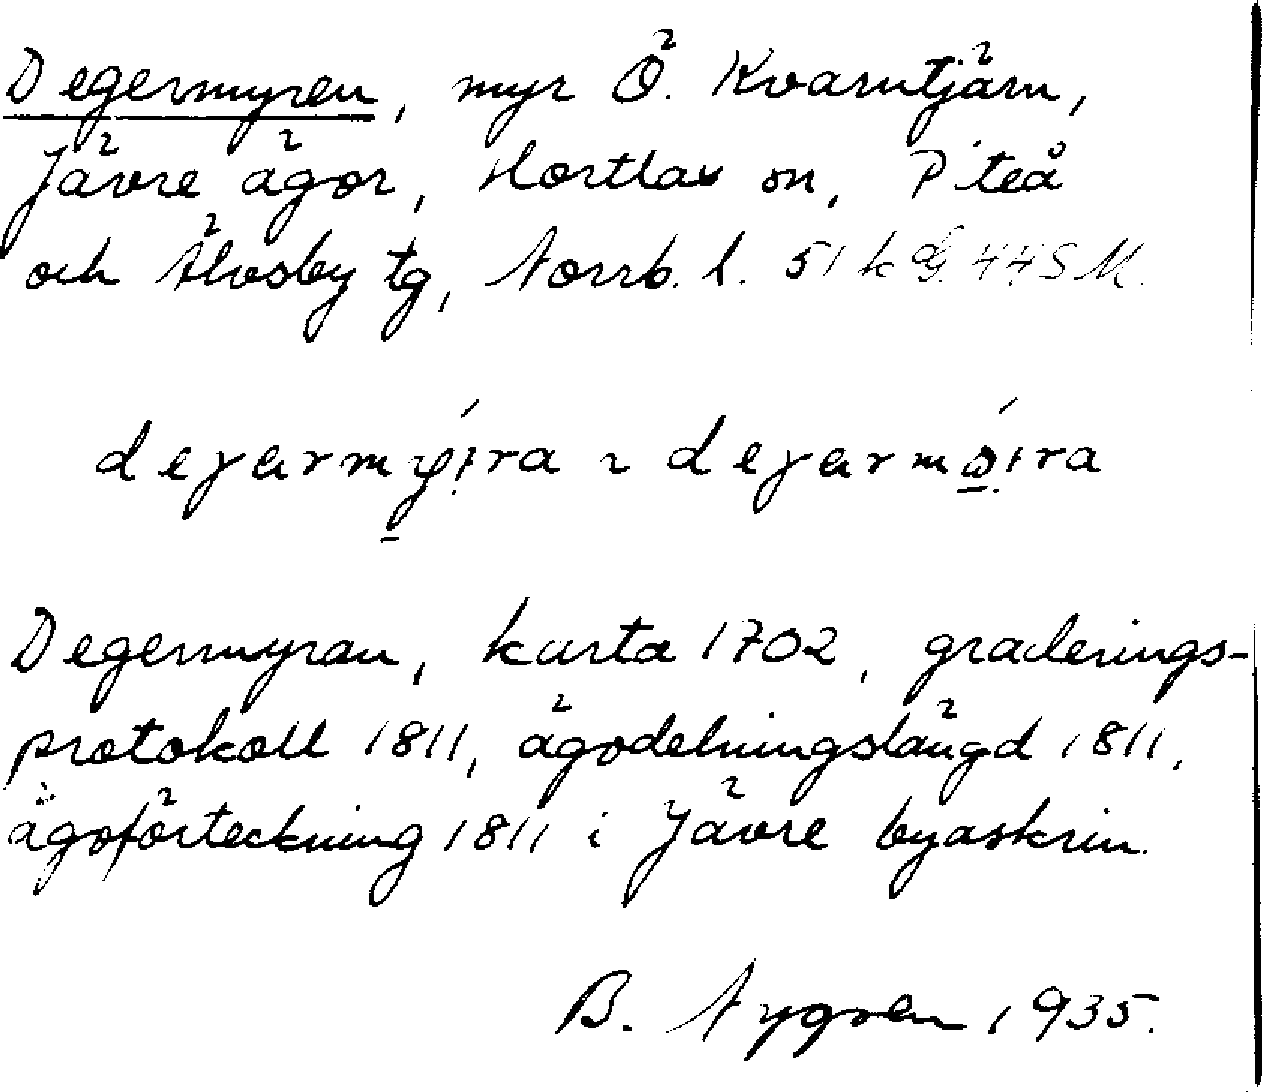 Degermyren, myr Ö. Kvarntjärn,
Jävre ägor, Hortlax sn, Piteå
och Älvsby tg, Norrb. l. 51 k 445 M.
Degermyran, karta 1702, graderings-
protokoll 1811, ägodelningslängd 1811,
ägoförteckning 1811 i Jävre byaskrin.
B. Nygren 1935.